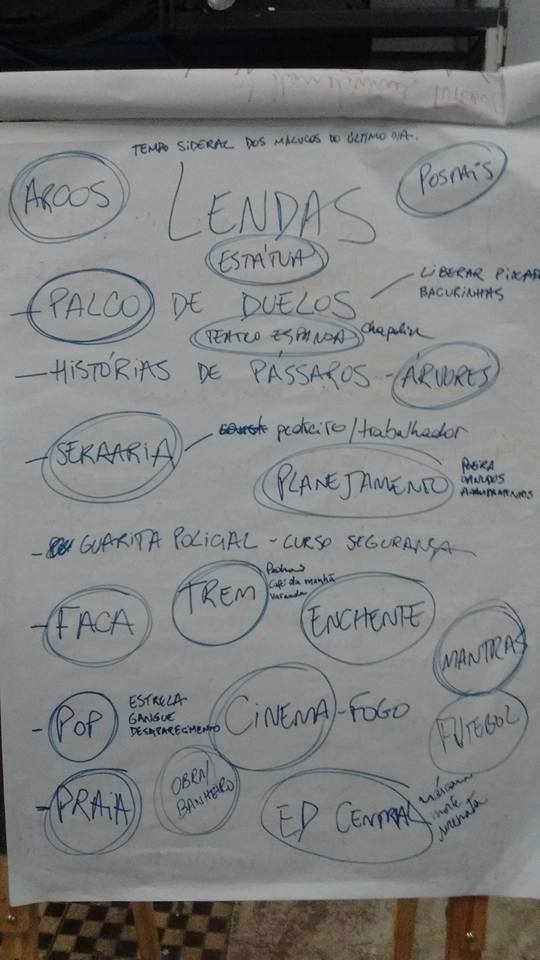 TEMPO SIDERAL DOS MALUCOS DO ÚLTIMO DIA.
ARCOS
LENDAS
POSTAIS
ESTÁTUA
- PALCO DE DUELOS
LIBERAR
BACURINHAS
TEATRO ESPANCA
- HISTÓRIAS DE PÁSSAROS - ÁRVORES
- SERRARIA
pedreiro/trabalhador
PLANEJAMENTO
POEIRA
- GUARITA POLICIAL - CURSO SEGURANÇA
- FACA
TREM
Café da manhã
Varanda
ENCHENTE
MANTRAS
- POP
ESTRELA
GANGUE
DESAPARECIMENTO
CINEMA - FOGO
FUTEBOL
- PRAIA
OBRA/
BANHEIRO
ED CENTRAL
morte